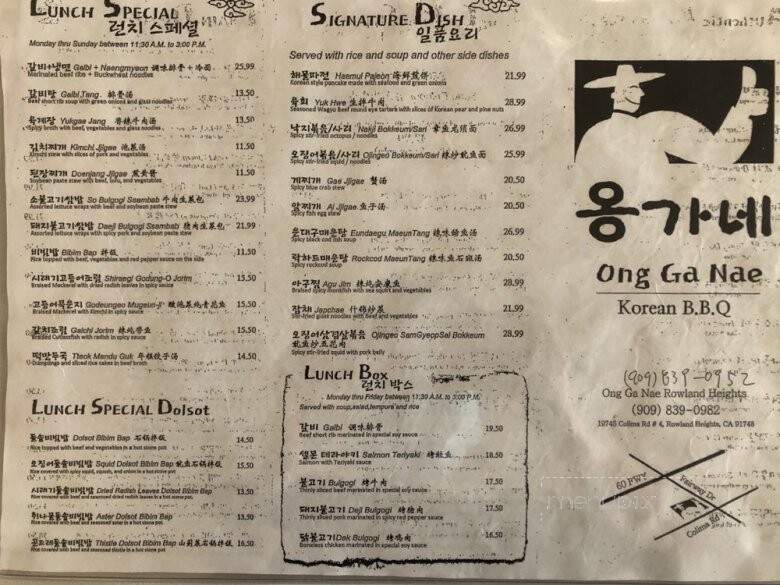 LUNCH SPECIAL
런치 스페셜
Monday thru Sunday between 11:30 A.M. to 3:00 P.M.
갈비+냉면 Galbi + Naengmyeon 调味排骨+冷面 25.99
Marinated beef ribs + Buckwheat noodles
갈비탕 Galbi Tang 排骨湯 13.50
Beef short rib soup with green onions and glass noodles
육계장 Yukgae Jang 香辣牛肉湯 13.50
Spicy broth with beef, vegetables and glass noodles
김치찌개 Kimchi Jjigae 泡菜湯 11.50
Kimchi stew with slices of pork and vegetables
된장찌개 Doenjang Jjigae 11.50
Soybean paste stew with beef, tofu, and vegetables
소불고기쌈밥 So Bulgogi Ssambab 牛肉生菜包 23.99
Assorted lettuce wraps with beef and soybean paste stew
돼지불고기쌈밥 Daeji Bulgogi Ssambab 猪肉生菜包 21.99
Assorted lettuce wraps with spicy pork and soybean paste stew
비빔밥 Bibim Bap 拌飯 11.50
Rice topped with beef, vegetables and red pepper sauce on the side
시래기고등어조림 Shiraegi Godung-O Jorim 15.50
Braised Mackerel with dried radish leaves in spicy sauce
고등어묵은지 Godeungeo Mugeun-ji 15.50
Braised Mackerel with Kimchi in spicy sauce
갈치조림 Galchi Jorim 15.50
Braided Cutlassfish with radish in spicy sauce
떡만두국 Tteok Mandu Guk 年糕餃子湯 14.50
Dumplings and sliced rice cakes in beef broth
LUNCH SPECIAL DOLSOT
돌솥비빔밥 Dolsot Bibim Bap 石鍋拌飯 14.50
Rice topped with beef and vegetables in a hot stone pot
오징어돌솥비빔밥 Squid Dolsot Bibim Bap 魷魚石鍋拌飯 15.50
Rice covered with spicy squid, squash, and onion in a hot stone pot
시래기돌솥비빔밥 Dried Radish Leaves Dolsot Bibim Bap 13.50
Rice covered with beef and seasoned dried radish leaves in a hot stone pot
취나물돌솥비빔밥 Aster Dolsot Bibim Bap 13.50
Rice covered with beef and seasoned aster in a hot stone pot
곤드레돌솥비빔밥 Thistle Dolsot Bibim Bap 山薊菜石鍋拌飯 16.50
Rice covered with beef and seasoned thistle in a hot stone pot
SIGNATURE DISH
일품요리
Served with rice and soup and other side dishes
해물파전 Haemul Pajeon 海鮮煎餅 21.99
Korean style pancake made with seafood and green onions
육회 Yuk Hwe 生拌牛肉 28.99
Seasoned Wagyu Beef round eye tartare with slices of Korean pear and pine nuts
낙지볶음/사리 Nakji Bokkeum/Sari 26.99
Spicy stir-fried octopus / noodles
오징어볶음/사리 Ojingeo Bokkeum/Sari 辣炒魷魚面 25.99
Spicy stir-fried squid / noodles
게찌개 Gae Jjigae 蟹湯 20.50
Spicy blue crab stew
알찌개 Al Jjigae 鱼子湯 20.50
Spicy fish egg stew
은대구매운탕 Eundaegu MaeunTang 29.99
Spicy black cod fish soup
락하드매운탕 Rockcod MaeunTang 20.50
Spicy rockcod soup
아구찜 Agu Jim 28.99
Braised spicy monkfish with sea squirt and vegetables
잡채 Japchae 什锦炒菜 21.99
Stir-fried glass noodles with beef and vegetables
오징어삼겹살볶음 Ojingeo SamGyeopSal Bokkeum 28.99
魷魚炒五花肉
Spicy stir-fried squid with pork belly
LUNCH BOX
런치 박스
Monday thru Friday between 11:30 A.M. to 3:00 P.M.
Served with soup,salad,tempura and rice
갈비 Galbi 调味排骨 19.50
Beef short rib marinated in special soy sauce
샐몬 테리야키 Salmon Teriyaki 烤鮭魚 18.50
Salmon with Teriyaki sauce
불고기 Bulgogi 烤牛肉 17.50
Thinly sliced beef marinated in special soy sauce
돼지불고기 Deji Bulgogi 烤豬肉 17.50
Thinly sliced pork marinated in spicy red pepper sauce
닭불고기 Dak Bulgogi 烤鸡肉 16.50
Boneless chicken marinated in special soy sauce
옹가네
Ong Ga Nae
Korean B.B.Q
(909) 839-0952
Ong Ga Nae Rowland Heights
(909) 839-0982
19745 Colima Rd # 4, Rowland Heights, CA 91748
60 FWY
Fairway Dr
Colima Rd
menupix